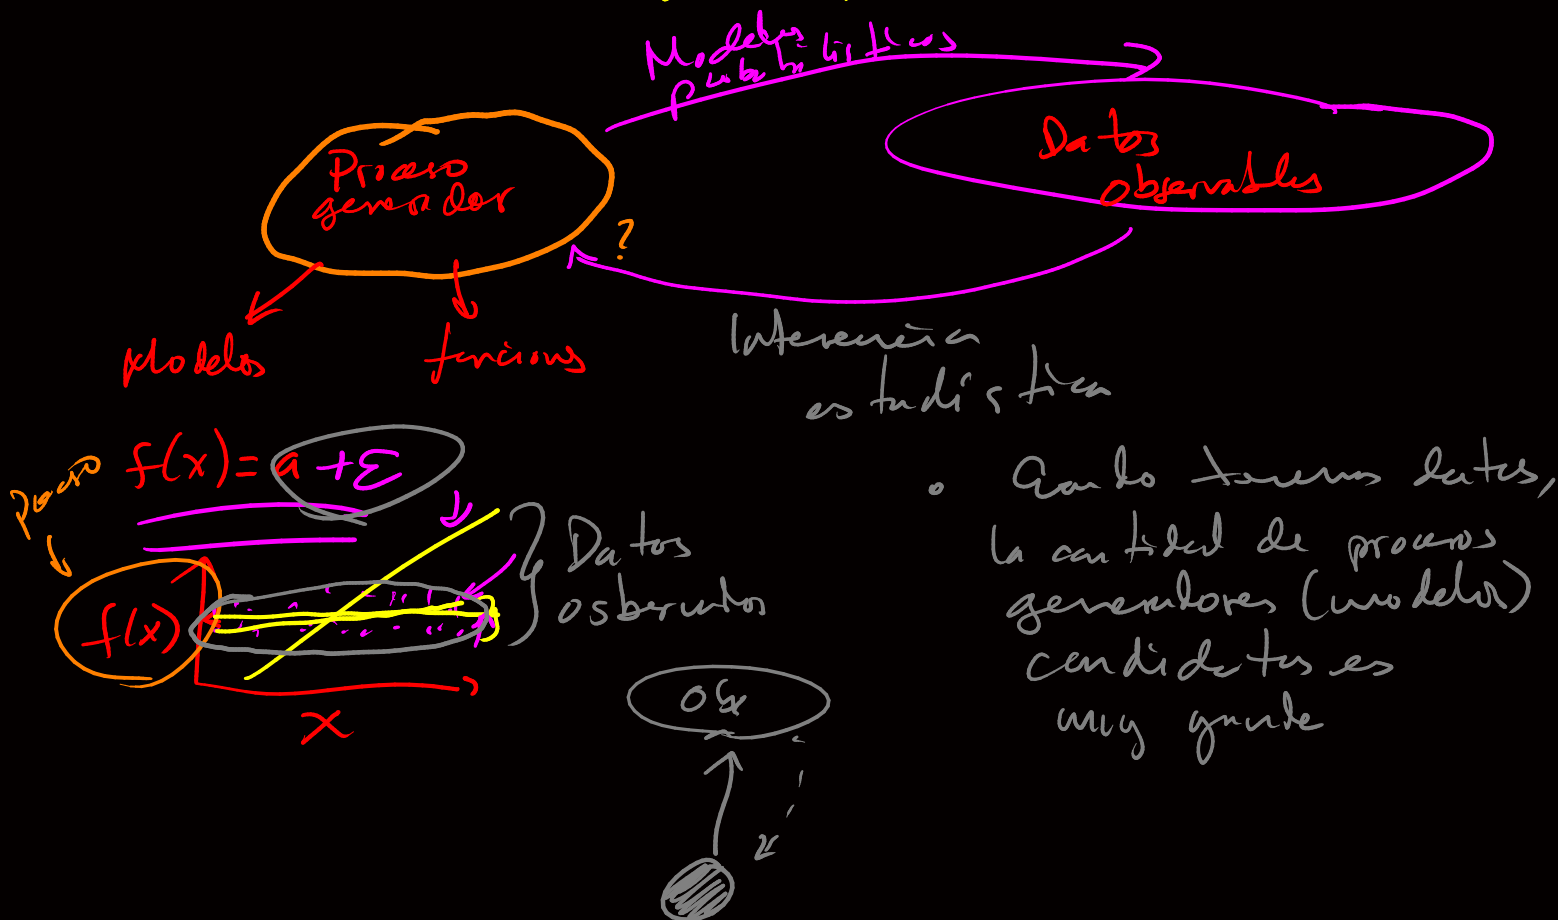 Modelos
probabilísticos
Proceso
generador
Datos
observables
?
Modelos
funciones
Inferencia
estadística
Proceso
f(x) = a + ε
f(x)
x
Datos
osbervados
• Cuando tenemos datos,
la cantidad de procesos
generadores (modelos)
candidatos es
muy grande